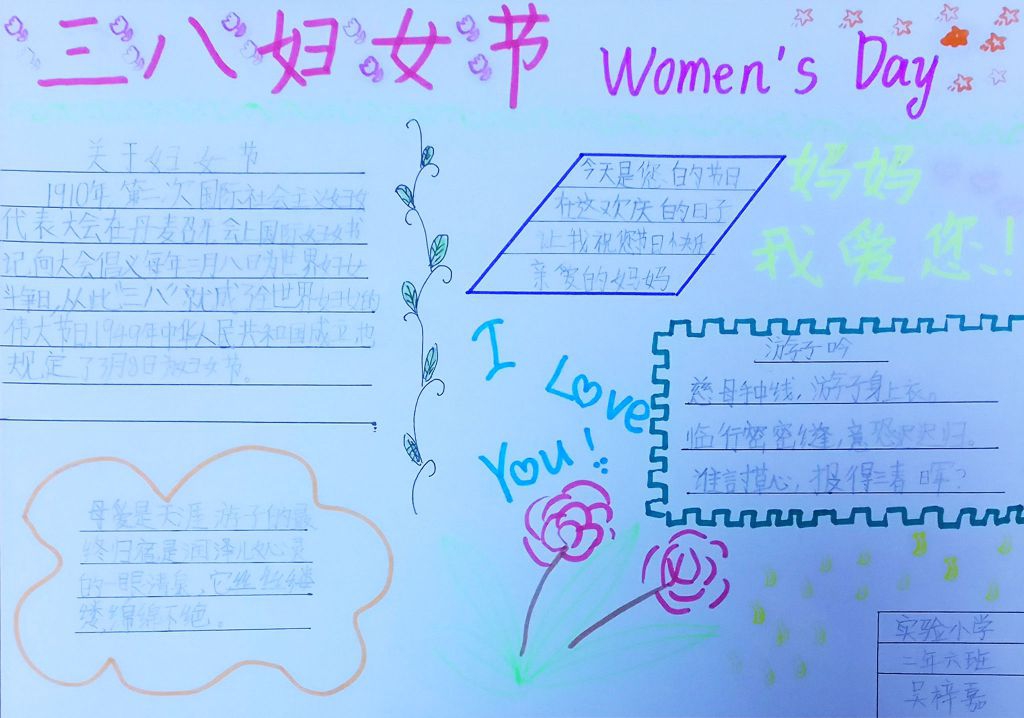 三八妇女节 Women's Day
关于妇女节
1910年,第二次国际社会主义妇女
代表大会在丹麦召开,会上国际妇女书
记,向大会倡义每年三月八日为世界妇女
斗争日,从此"三八"就成了全世界妇女的
伟大节日,1949年中华人民共和国成立也
规定了3月8日为妇女节。
母爱是天涯游子的最
终归宿是润泽儿女心灵
的一眼清泉,它丝丝缕缕
缕,绵绵不绝。
今天是您的节日
在这欢庆的日子
让我祝您节日快乐
亲爱的妈妈
妈妈
我爱您!!
I
Love
You!
游子吟
慈母手中线,游子身上衣。
临行密密缝,意恐迟迟归。
谁言寸草心,报得三春晖?
实验小学
二年六班
吴梓嘉